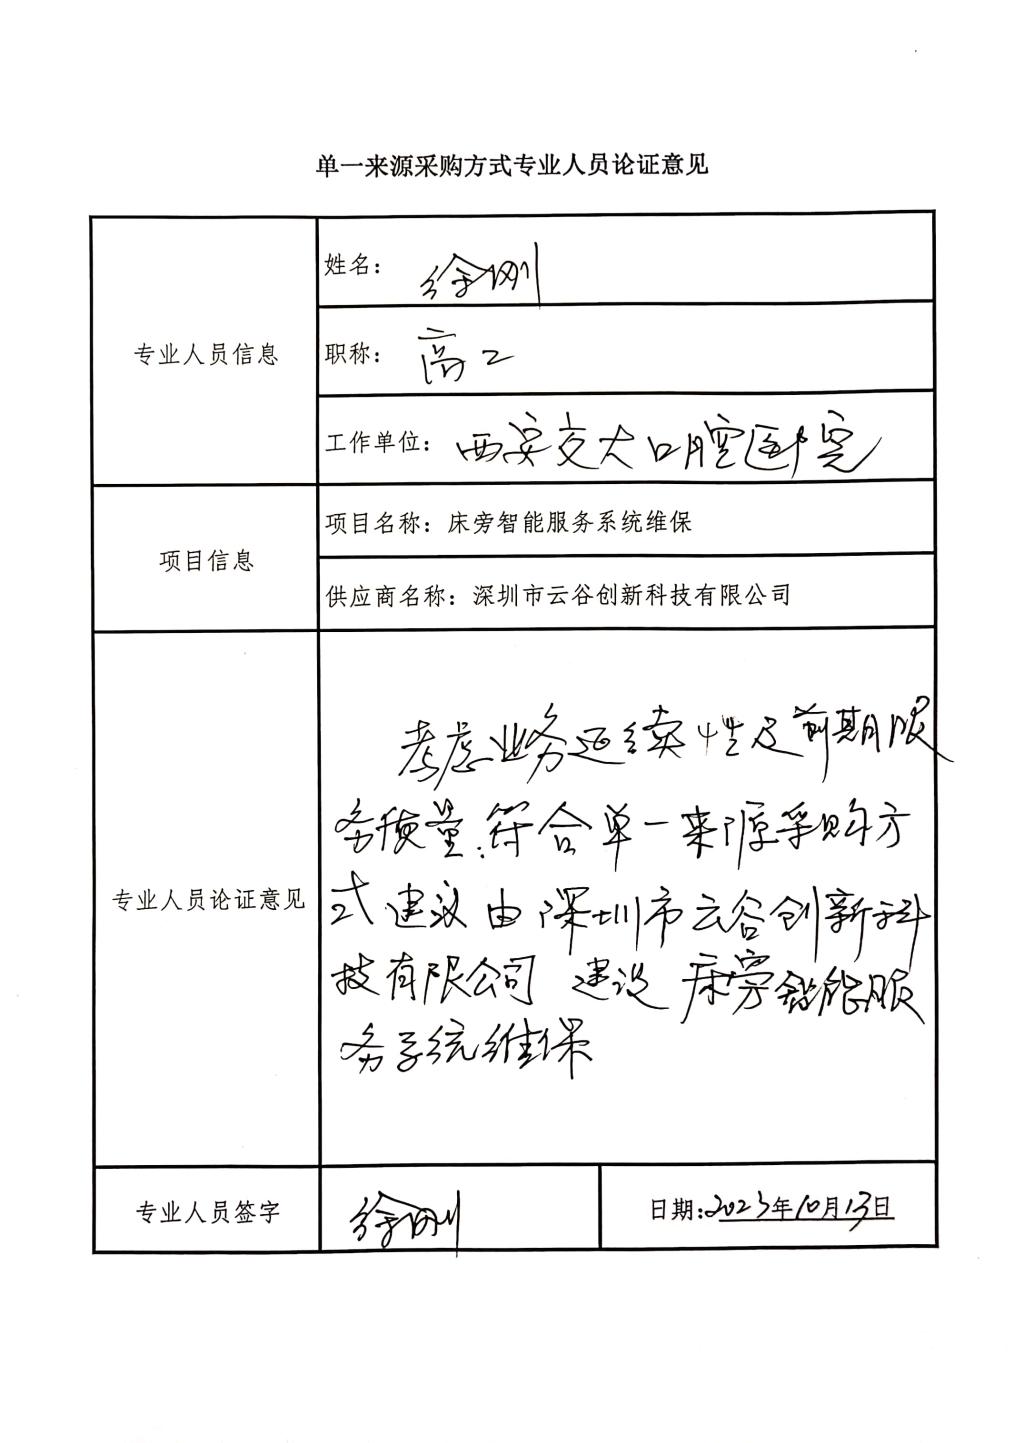 单一来源采购方式专业人员论证意见
专业人员信息
姓名： 徐刚
职称： 高工
工作单位： 西安交大口腔医院
项目信息
项目名称：床旁智能服务系统维保
供应商名称：深圳市云谷创新科技有限公司
专业人员论证意见
考虑业务延续性及前期服
务质量，符合单一来源采购方
式建议由深圳市云谷创新科
技有限公司 建设 床旁智能服
务系统维保
专业人员签字
徐刚
日期：2023年10月13日